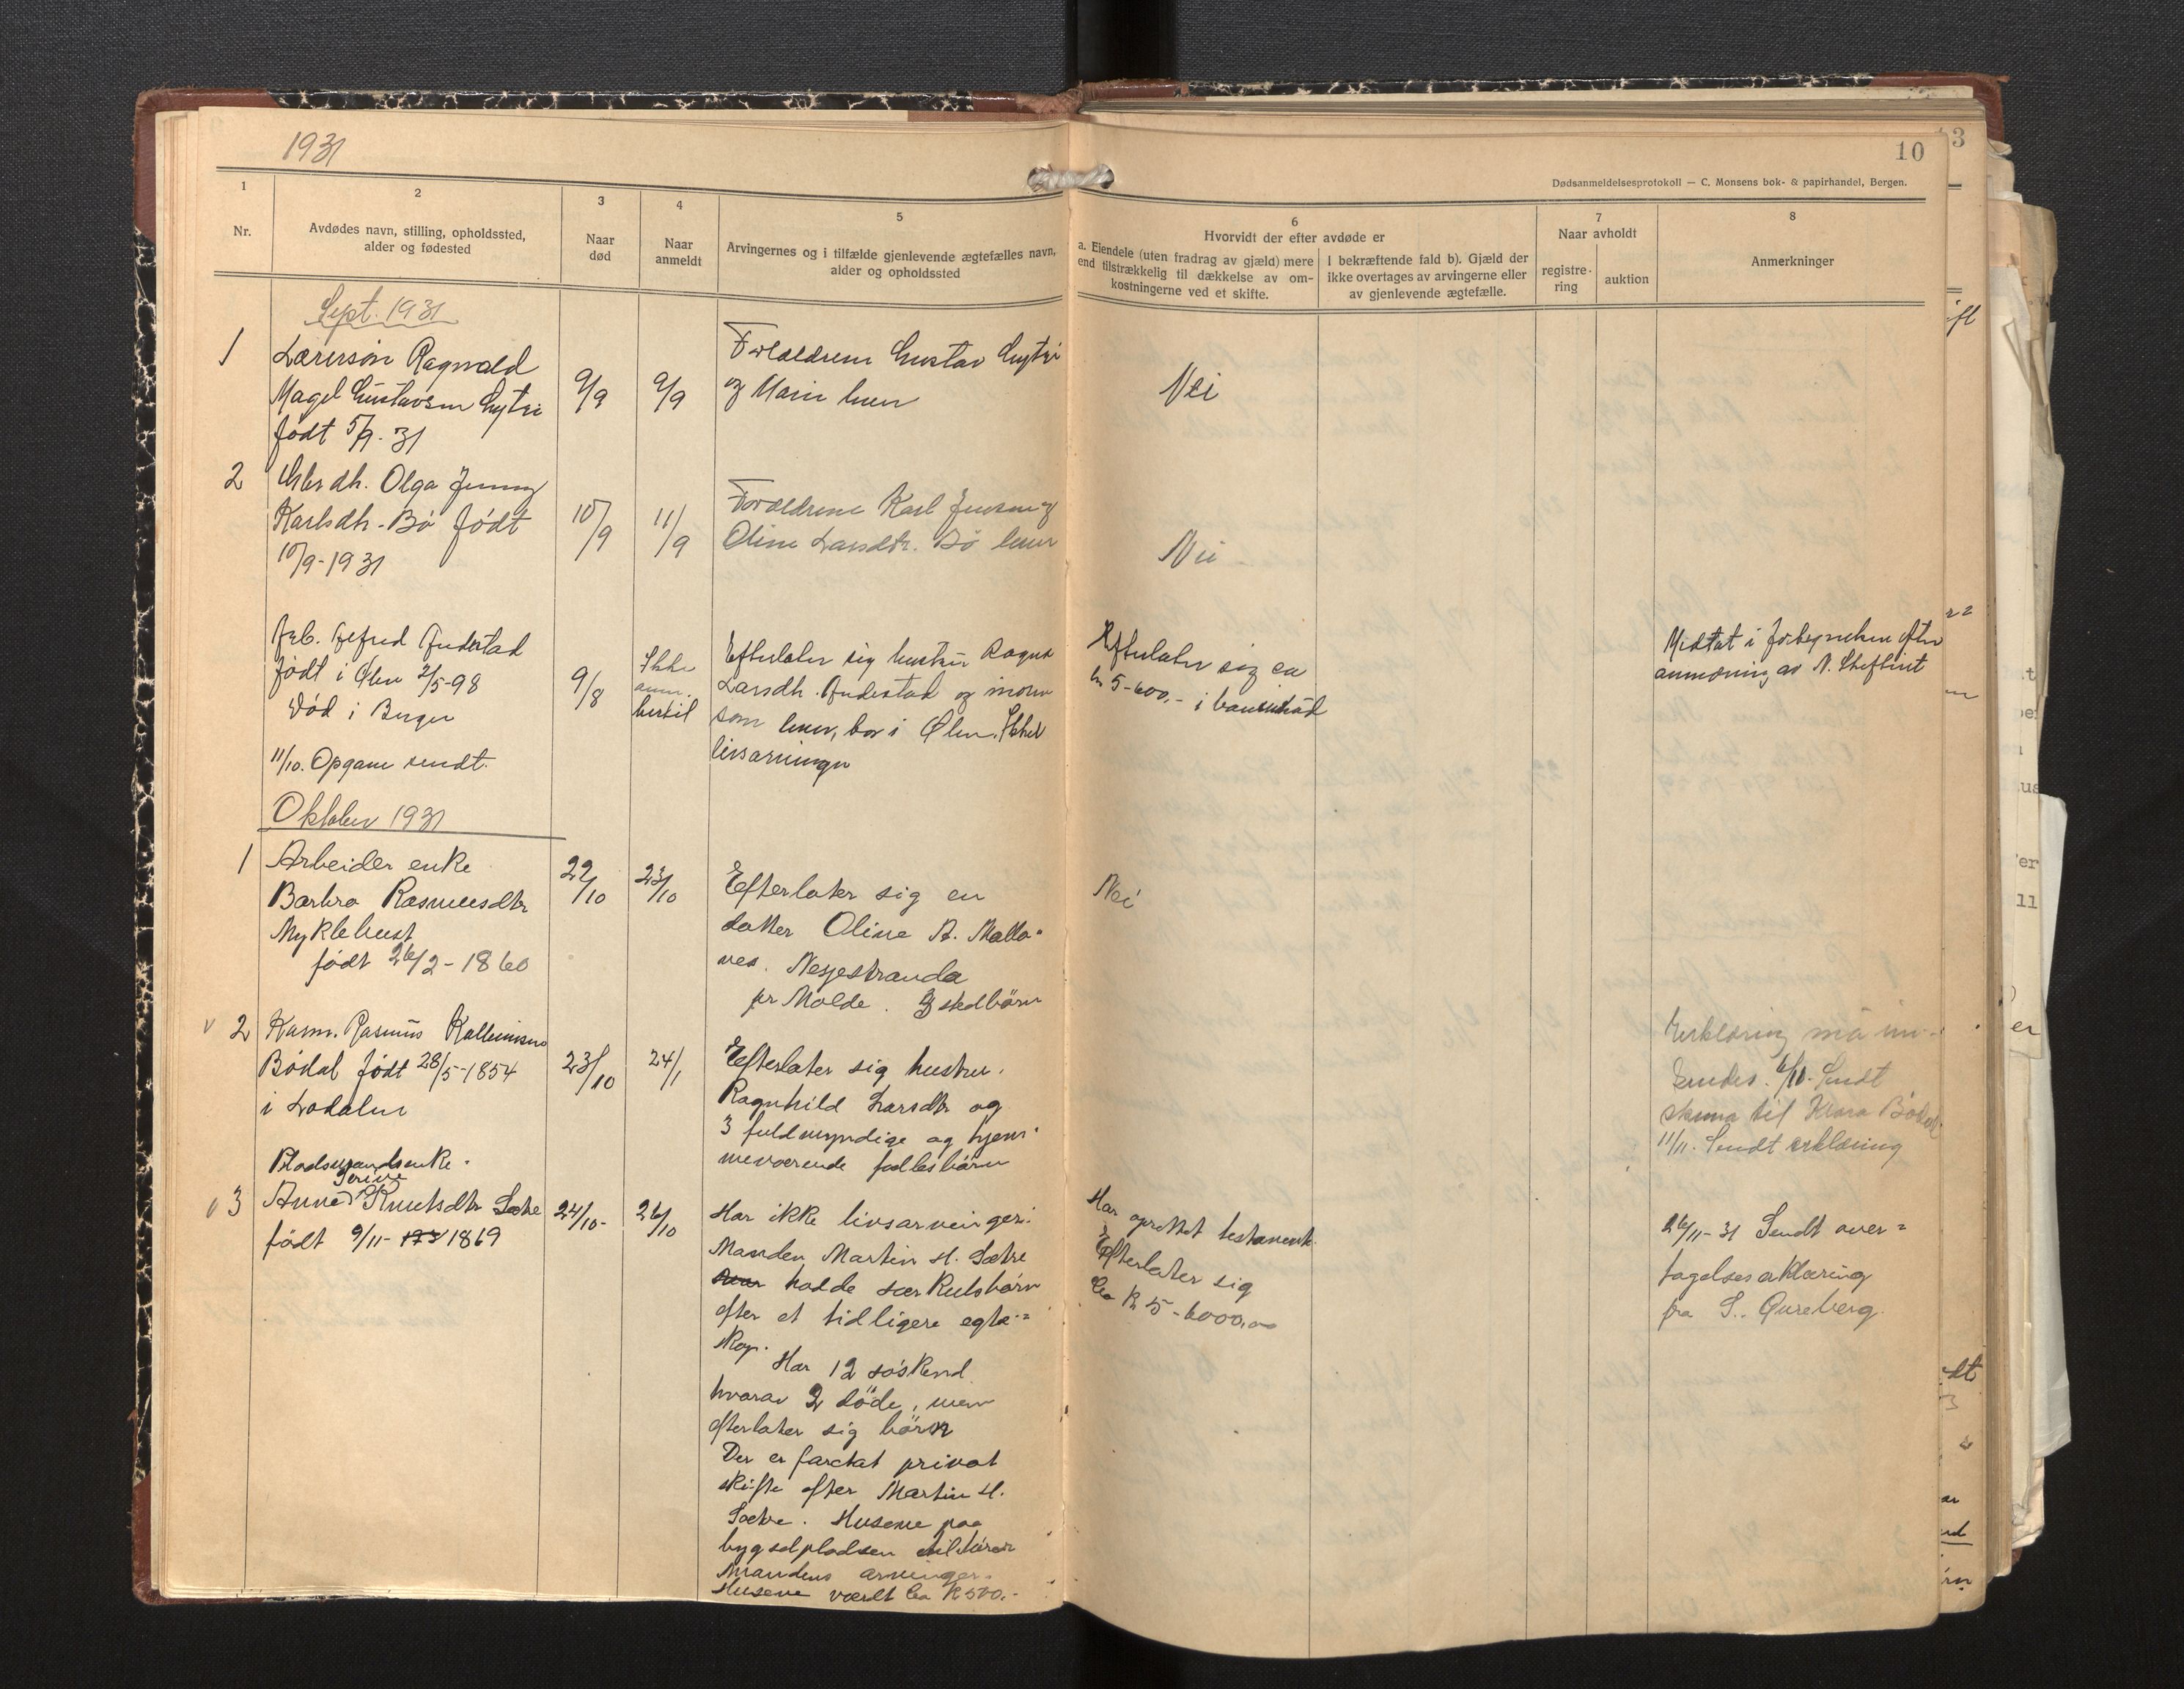 1931
10
Dødsanmeldelsesprotokoll — C. Monsens bok- & papirhandel, Bergen.
1
Nr.
2
Avdødes navn, stilling, opholdssted,
alder og fødested
3
Naar
død
4
Naar
anmeldt
5
Arvingernes og i tilfælde gjenlevende ægtefælles navn,
alder og opholdssted
6
Hvorvidt der efter avdøde er
a. Eiendele (uten fradrag av gjæld) mere
end tilstrækkelig til dækkelse av om-
kostningerne ved et skifte.
I bekræftende fald b). Gjæld der
ikke overtages av arvingerne eller
av gjenlevende ægtefælle.
7
Naar avholdt
registre-
ring
auktion
8
Anmerkninger
Sept. 1931
1
Ragnvald
Magel Gustavsen
født 5/9-31
9/9
9/9
Forældrene Gustav
og
Nei
2
Olga Jenny
Karlsdh. Bö födt
10/9-1931
10/9
11/9
Forældrene Karl Jensen og
Oline Larsdtr. Bö
Nei
Arb. Alfred
født i Ølen 2/5-98
Død i Bergen
11/10. Opgave sendt.
9/8
Ikke
anm.
hertil
Efterlater sig hustru Ragna
Larsdh. og
som bor i Ølen. Ikke
livsarvinger
Efterlater sig ca
kr 5-600,- i
i
av N.
Oktober 1931
1
Arbeider enke
Barbro Rasmusdtr
Myklebust
født 26/2-1860
22/10
23/10
Efterlater sig en
datter Oline A. Malla-
nes. Nesjestranda
pr Molde. stedbörn
Nei
v 2
Rasmus
Bödal födt 28/5-1854
i Lodalen
23/10
24/1
Efterlater sig hustru.
Ragnhild Larsdtr og
3 fuldmyndige og hjem-
meværende fællesbörn
Erklæring må inn-
sendes. 6/11. Sendt
skema til Klara Bödal
11/11. Sendt erklæring
Pladsmandsenke.
v 3
Anne Knutsdtr Sætre
födt 9/11- 1869
24/10-
26/10
Har ikke livsarvinger.
Manden Martin H. Sætre
hadde særkulsbörn
efter et tidligere egte=
skap.
Har 12 söskend
hvorav 2 döde, men
efterlater sig börn
Der er foretat privat
skifte efter Martin H.
Sætre. Husene paa
bygselpladsen tilhörer
Mandens arvinger.
Husene værdt ca K 500,-
Har oprettet testament.
Efterlater sig
Ca K 5-6000,00
26/11-31 Sendt over=
tagelseserklæring
fra S.